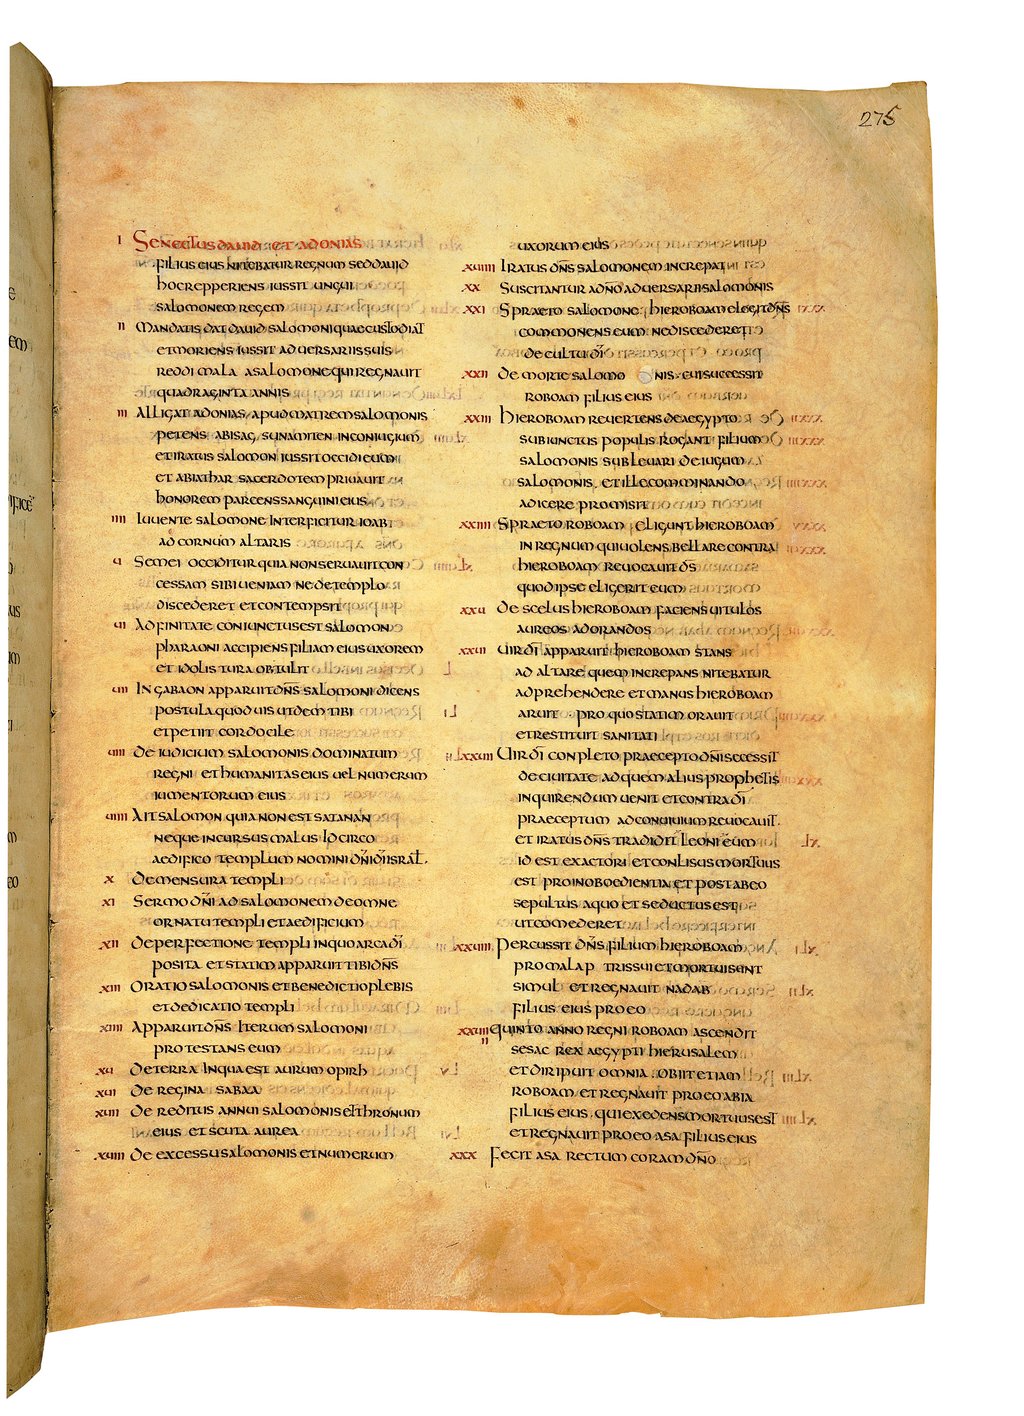 275
I Senectus dauid et adonias
filius eius nitebatur regnum sed dauid
hoc repperiens iussit ungui
salomonem regem
II Mandatis dat dauid salomoni quae custodiat
et moriens iussit aduersariis suis
reddi mala a salomone qui regnauit
quadraginta annis
III Alligat adonias apud matrem salomonis
petens abisag sunamiten in coniugium
et iratus salomon iussit occidi eum
et abiathar sacerdotem priuauit
honorem parcens sanguini eius
IIII Iuuente salomone interficitur ioab
ad cornum altaris
U Semei occiditur quia non seruauit con
cessam sibi ueniam ne de templo
discederet et contempsit
UI Adfinitate coniunctus est salomon
pharaoni accipiens filiam eius uxorem
et idolis tura obtulit
UII In gabaon apparuit dns salomoni dicens
postula quod uis ut dem tibi
et petiit cor docile
UIII De iudicium salomonis dominatum
regni et humanitas eius uel numerum
iumentorum eius
UIIII Ait salomon quia non est satanan
neque incursus malus idcirco
aedifico templum nomini dni di israt.
X De mensura templi
XI Sermo dni ad salomonem de omne
ornatu templi et aedificium
XII De perfectione templi in quo arca di
posita et statim apparuit tibi dns
XIII Oratio salomonis et benedictio plebis
et dedicatio templi
XIIII Apparuit dns iterum salomoni
protestans eum
XU De terra in qua est aurum opirh
XUI De regina sabaa
XUII De reditus annui salomonis et thronum
eius et scuta aurea
XUIII De excessu salomonis et numerum
uxorum eius
XUIIII Iratus dns salomonem increpat
XX Suscitantur a dno aduersarii salomonis
XXI Spraeto salomone hieroboam elegit dns
commonens eum ne discederet
de cultu di
XXII De morte salomo nis cui successit
roboam filius eius
XXIII Hieroboam reuertens de aegypto
subiunctus populis rogant filium
salomonis subleuari de iugum
salomonis et ille comminando
adicere promisit
XXIIII Spraeto roboam eligunt hieroboam
in regnum qui uolens bellare contra
hieroboam reuocauit ds
quod ipse eligerit eum
XXU De scelus hieroboam faciens uitulos
aureos adorandos
XXUI Uir di apparuit hieroboam stans
ad altare quem increpans nitebatur
adprehendere et manus hieroboam
aruit pro quo statim orauit
et restituit sanitati
XXUII Uir di conpleto praecepto dni secessit
de ciuitate ad quem alius prophetis
inquirendum uenit et contra di
praeceptum ad conuiuium reuocauit.
et iratus dns tradidit leoni eum
id est exactori et conlisus mortuus
est pro inoboedientia et post ab eo
sepultus a quo et seductus est
ut comederet
XXUIII Percussit dns filium hieroboam
pro mala p trissui et mortui sunt
simul et regnauit nadab
filius eius pro eo
XXUIIII Quinto anno regni roboam ascendit
sesac rex aegypti hierusalem
et diripuit omnia obiit etiam
roboam et regnauit pro eo abia
filius eius qui exedens mortuus est
et regnauit pro eo asa filius eius
XXX Fecit asa rectum coram dno